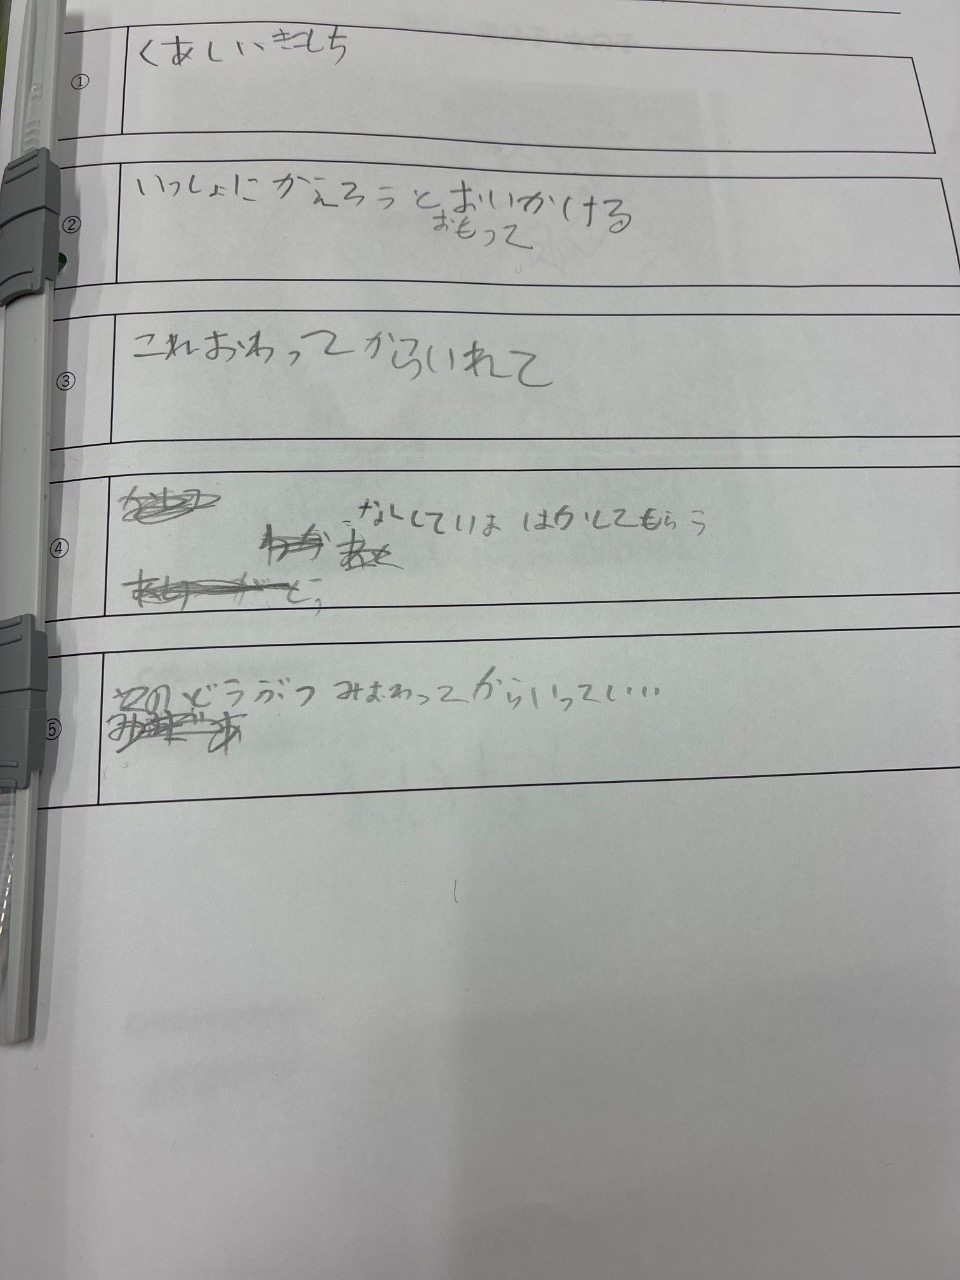 ①
くあしい、きもち
②
いっしょにかえろうとおいかける
おもって
③
これおわってからいれて
④
はかしてもらう
⑤
どうぶつ みおわってからいって…